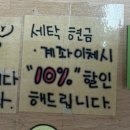 세탁 현금
·계좌이체시
"10%" 할인
해드립니다.